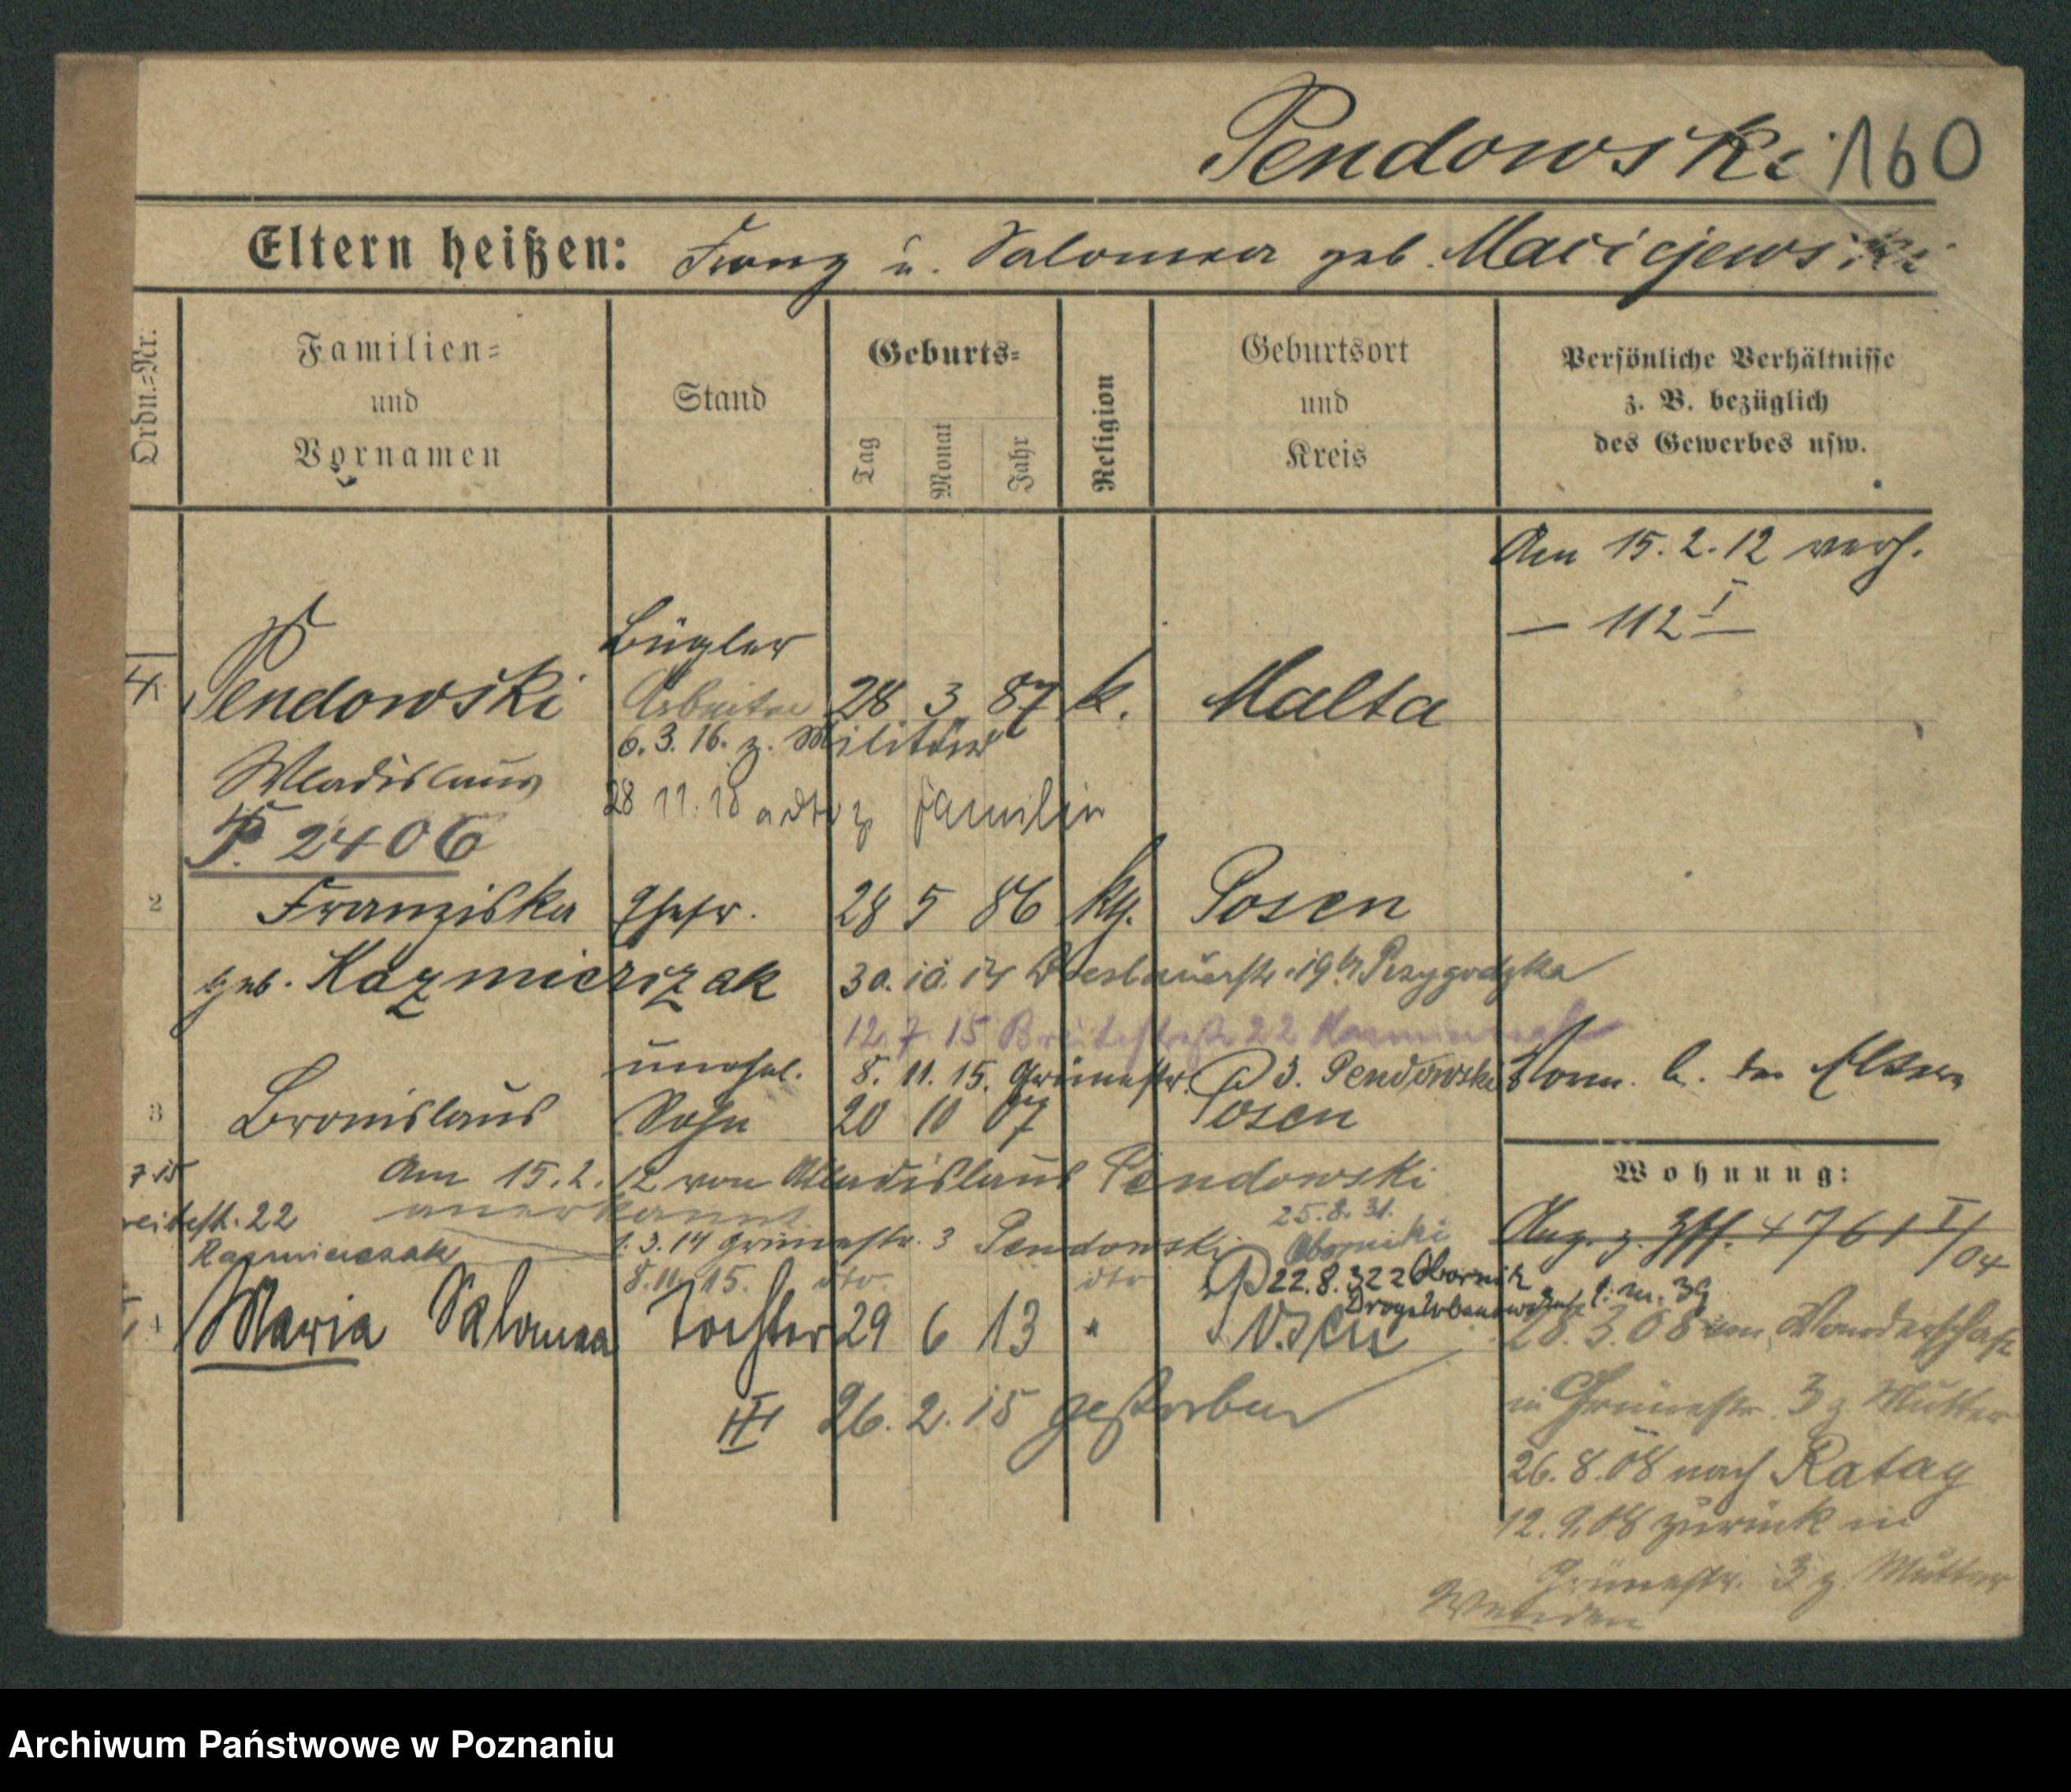 Pendowski 160
Eltern heißen: Franz u. Salomea geb. Maciejewski
Ordn.=Nr.
Familien=
und
Vornamen
Stand
Geburts=
Tag
Monat
Jahr
Religion
Geburtsort
und
Kreis
Persönliche Verhältnisse
z. B. bezüglich
des Gewerbes usw.
Am 15.2.12 verh.
— 112 I —
Bügler
Pendowski Arbeiter 28 3 87 k. Malta
6.3.16. z. Militär
Wladislaus
28 11. 18 z Familie
P. 2406
2 Franziska Ehefr. 28 5 86 kth. Posen
geb. Kazmierczak 30.10.14 Breslauerstr. 19 b/ Przygodzka
12.7.15 Breitestraße 22 Kazmierczak
unehel. 8. 11. 15. Grünestr. 3. Pendowski Vorm. b. den Eltern
3 Bronislaus Sohn 20 10 07 Posen
7 15 Am 15.2.12 von Wladislaus Pendowski
anerkannt
Wohnung:
reitestr. 22
25.8.31.
Oborniki
Kazmierczak 1.3.14 Grünestr. 3 Pendowski
Ang. z. 4761 I/04
8.11.15. dto dto 22.8.32 z Obornik
Droga Urbanowska l. m. 39
4 Maria Salomea Tochter 29 6 13 " Posen
28.3.08 von Wanderschaft
III 26.2.15 gestorben
in Grünestr. 3 z. Mutter
26.8.08 nach Ratay
12.9.08 zurück in
Grünestr. 3 z. Mutter
Archiwum Państwowe w Poznaniu